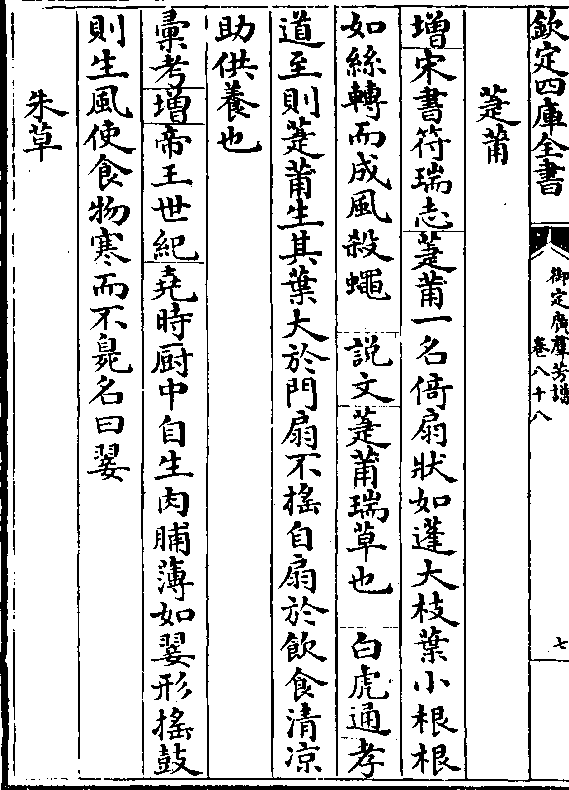 欽定四庫全書
御定廣羣芳譜
卷八十八
七
萐莆
增宋書符瑞志萐莆一名倚扇狀如蓬大枝葉小根根
如絲轉而成風殺蠅 說文萐莆瑞草也 白虎通孝
道至則萐莆生其葉大於門扇不搖自扇於飲食清凉
助供養也
彚考增帝王世紀堯時厨中自生肉脯薄如翣形搖鼓
則生風使食物寒而不臰名曰翣
朱草